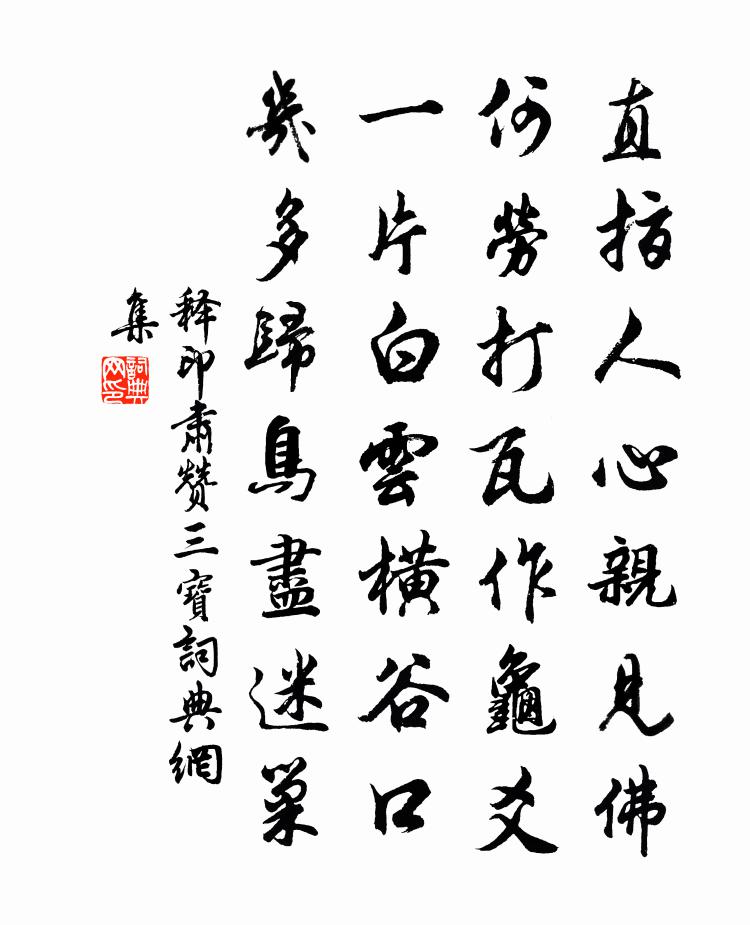 直指人心親見佛
何勞打瓦作龜爻
一片白雲橫谷口
幾多歸鳥盡迷巢
释印肅赞三寶詞典網
集
詞典網印